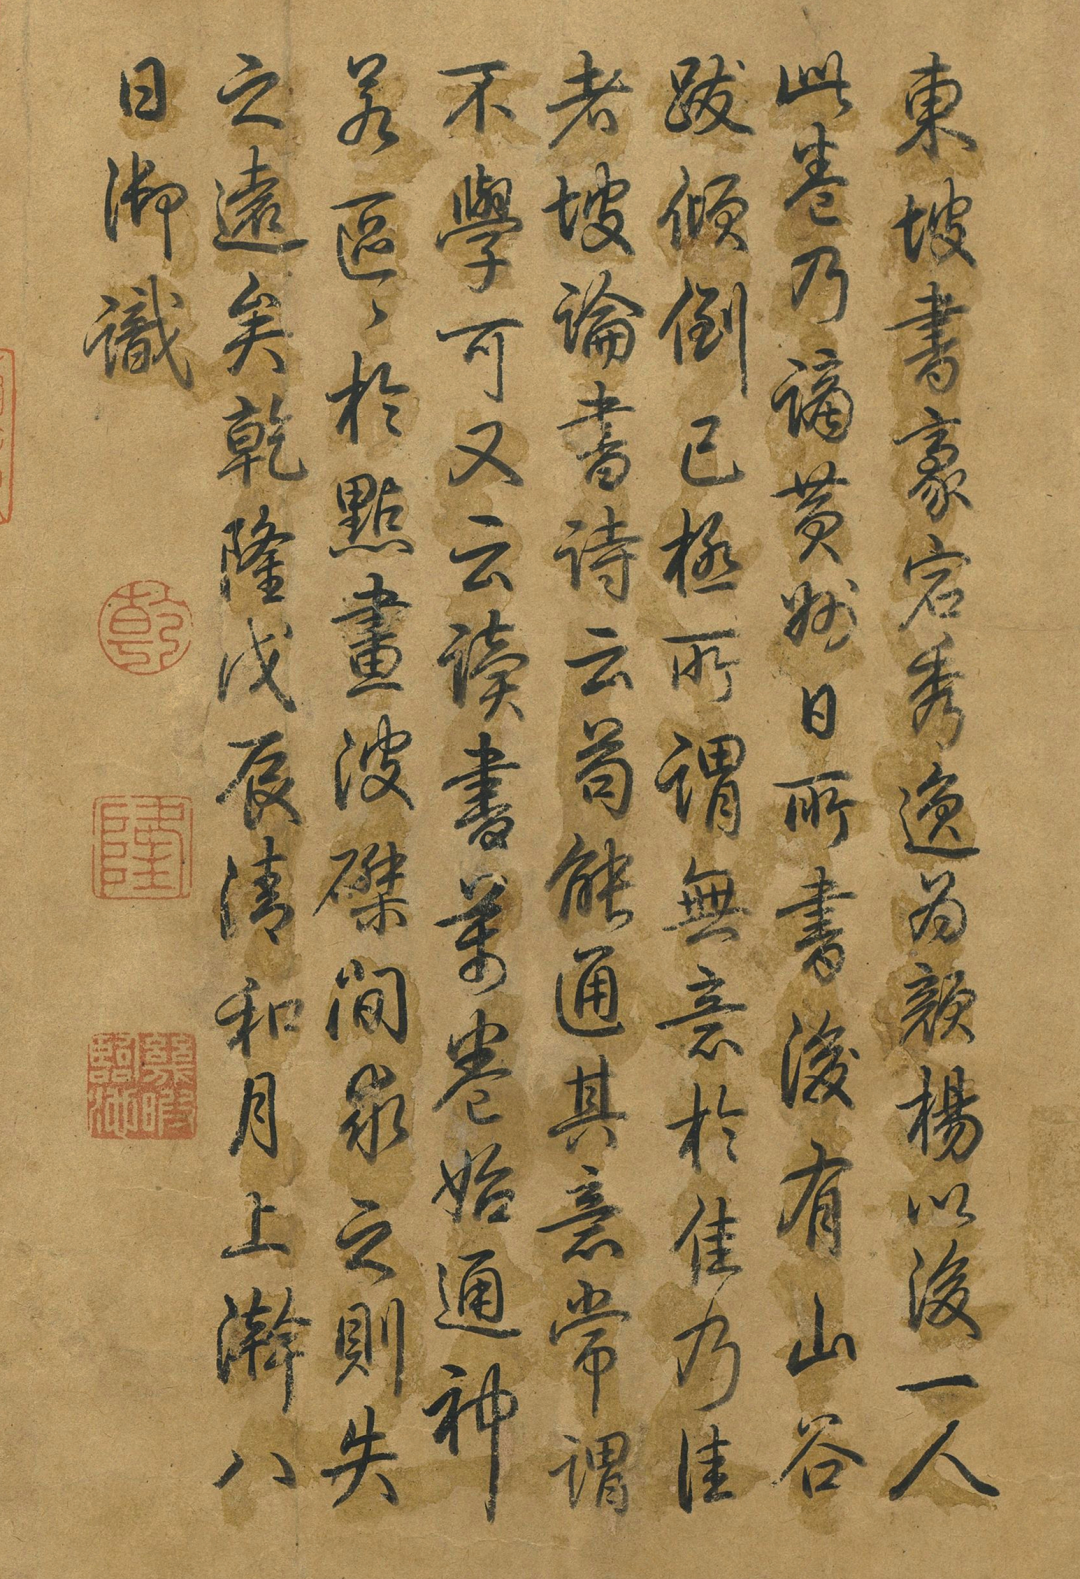 東坡書豪宕秀逸為顏楊以後一人
此卷乃謫黃州日所書後有山谷
跋傾倒已極所謂無意於佳乃佳
者坡論書詩云苟能通其意常謂
不學可又云讀書萬卷始通神
若區〻於點畫波磔間求之則失
之遠矣乾隆戊辰清和月上澣八
日御識
乾
隆
幾暇
臨池